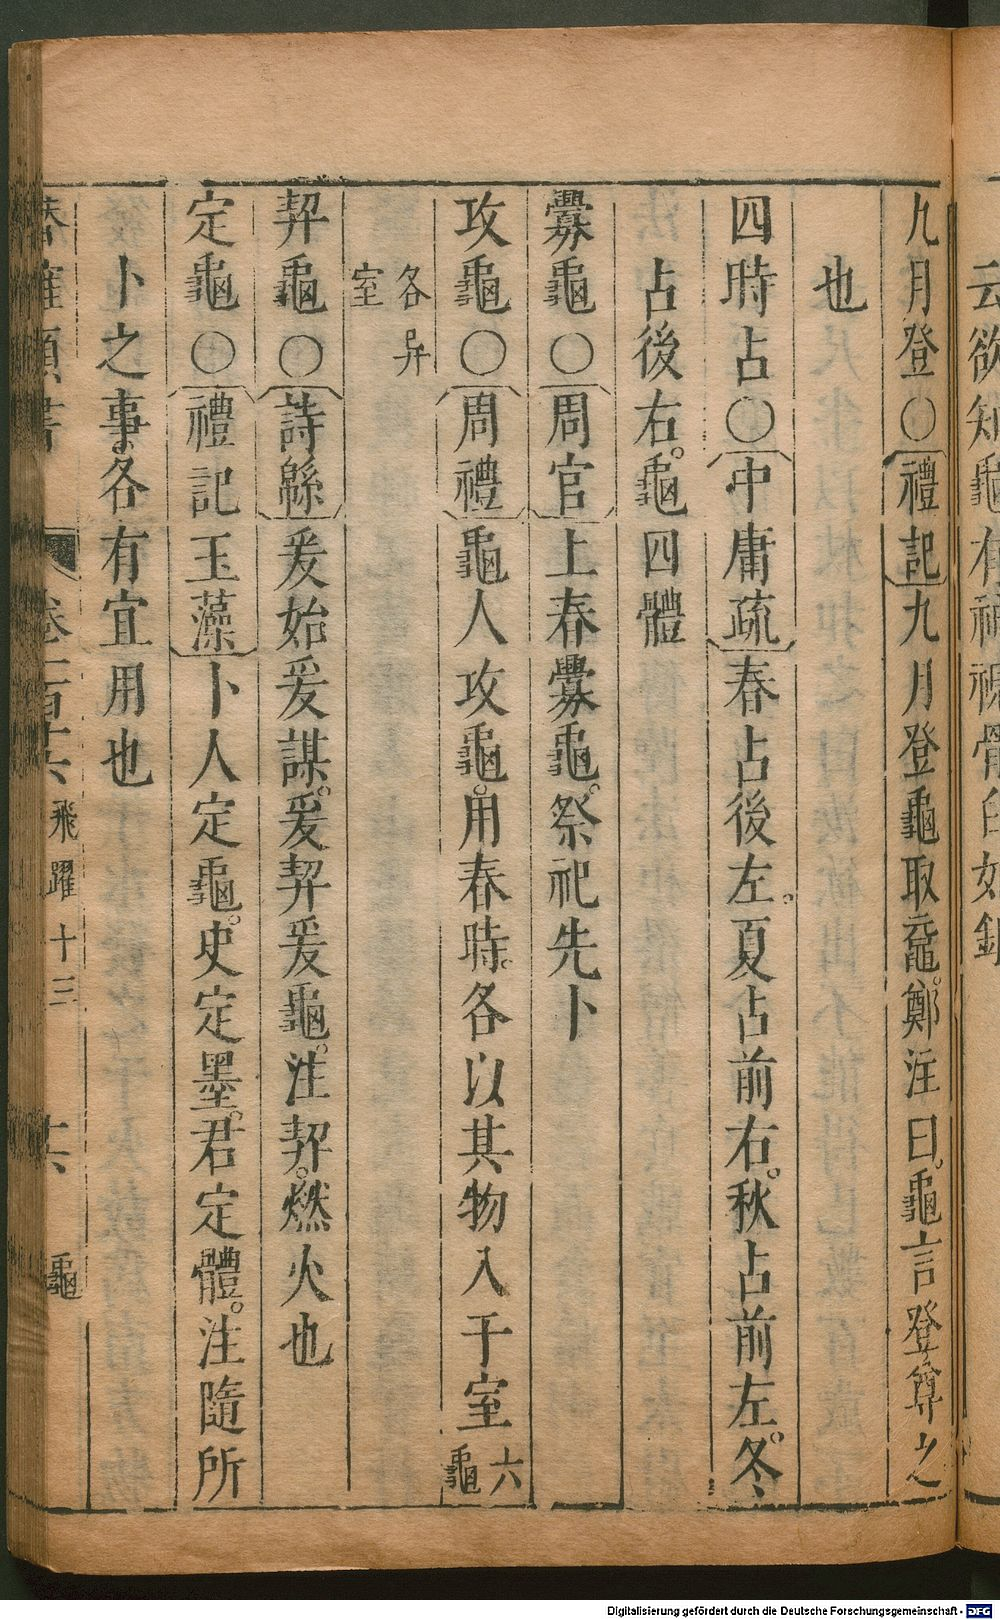 云欲知龜有神視骨白如銀
九月登○禮記九月登龜取黿鄭注曰龜言登尊之
也
四時占○中庸疏春占後左夏占前右秋占前左冬
占後右龜四體
釁龜○周官上春釁龜祭祀先卜
攻龜○周禮龜人攻龜用春時各以其物入于室六龜
各异室
契龜○詩緜爰始爰謀爰契爰龜注契燃火也
定龜○禮記玉藻卜人定龜史定墨君定體注隨所
卜之事各有宜用也
類書 卷一百六 飛躍十三 共 龜
Digitalisierung gefördert durch die Deutsche Forschungsgemeinschaft - DFG